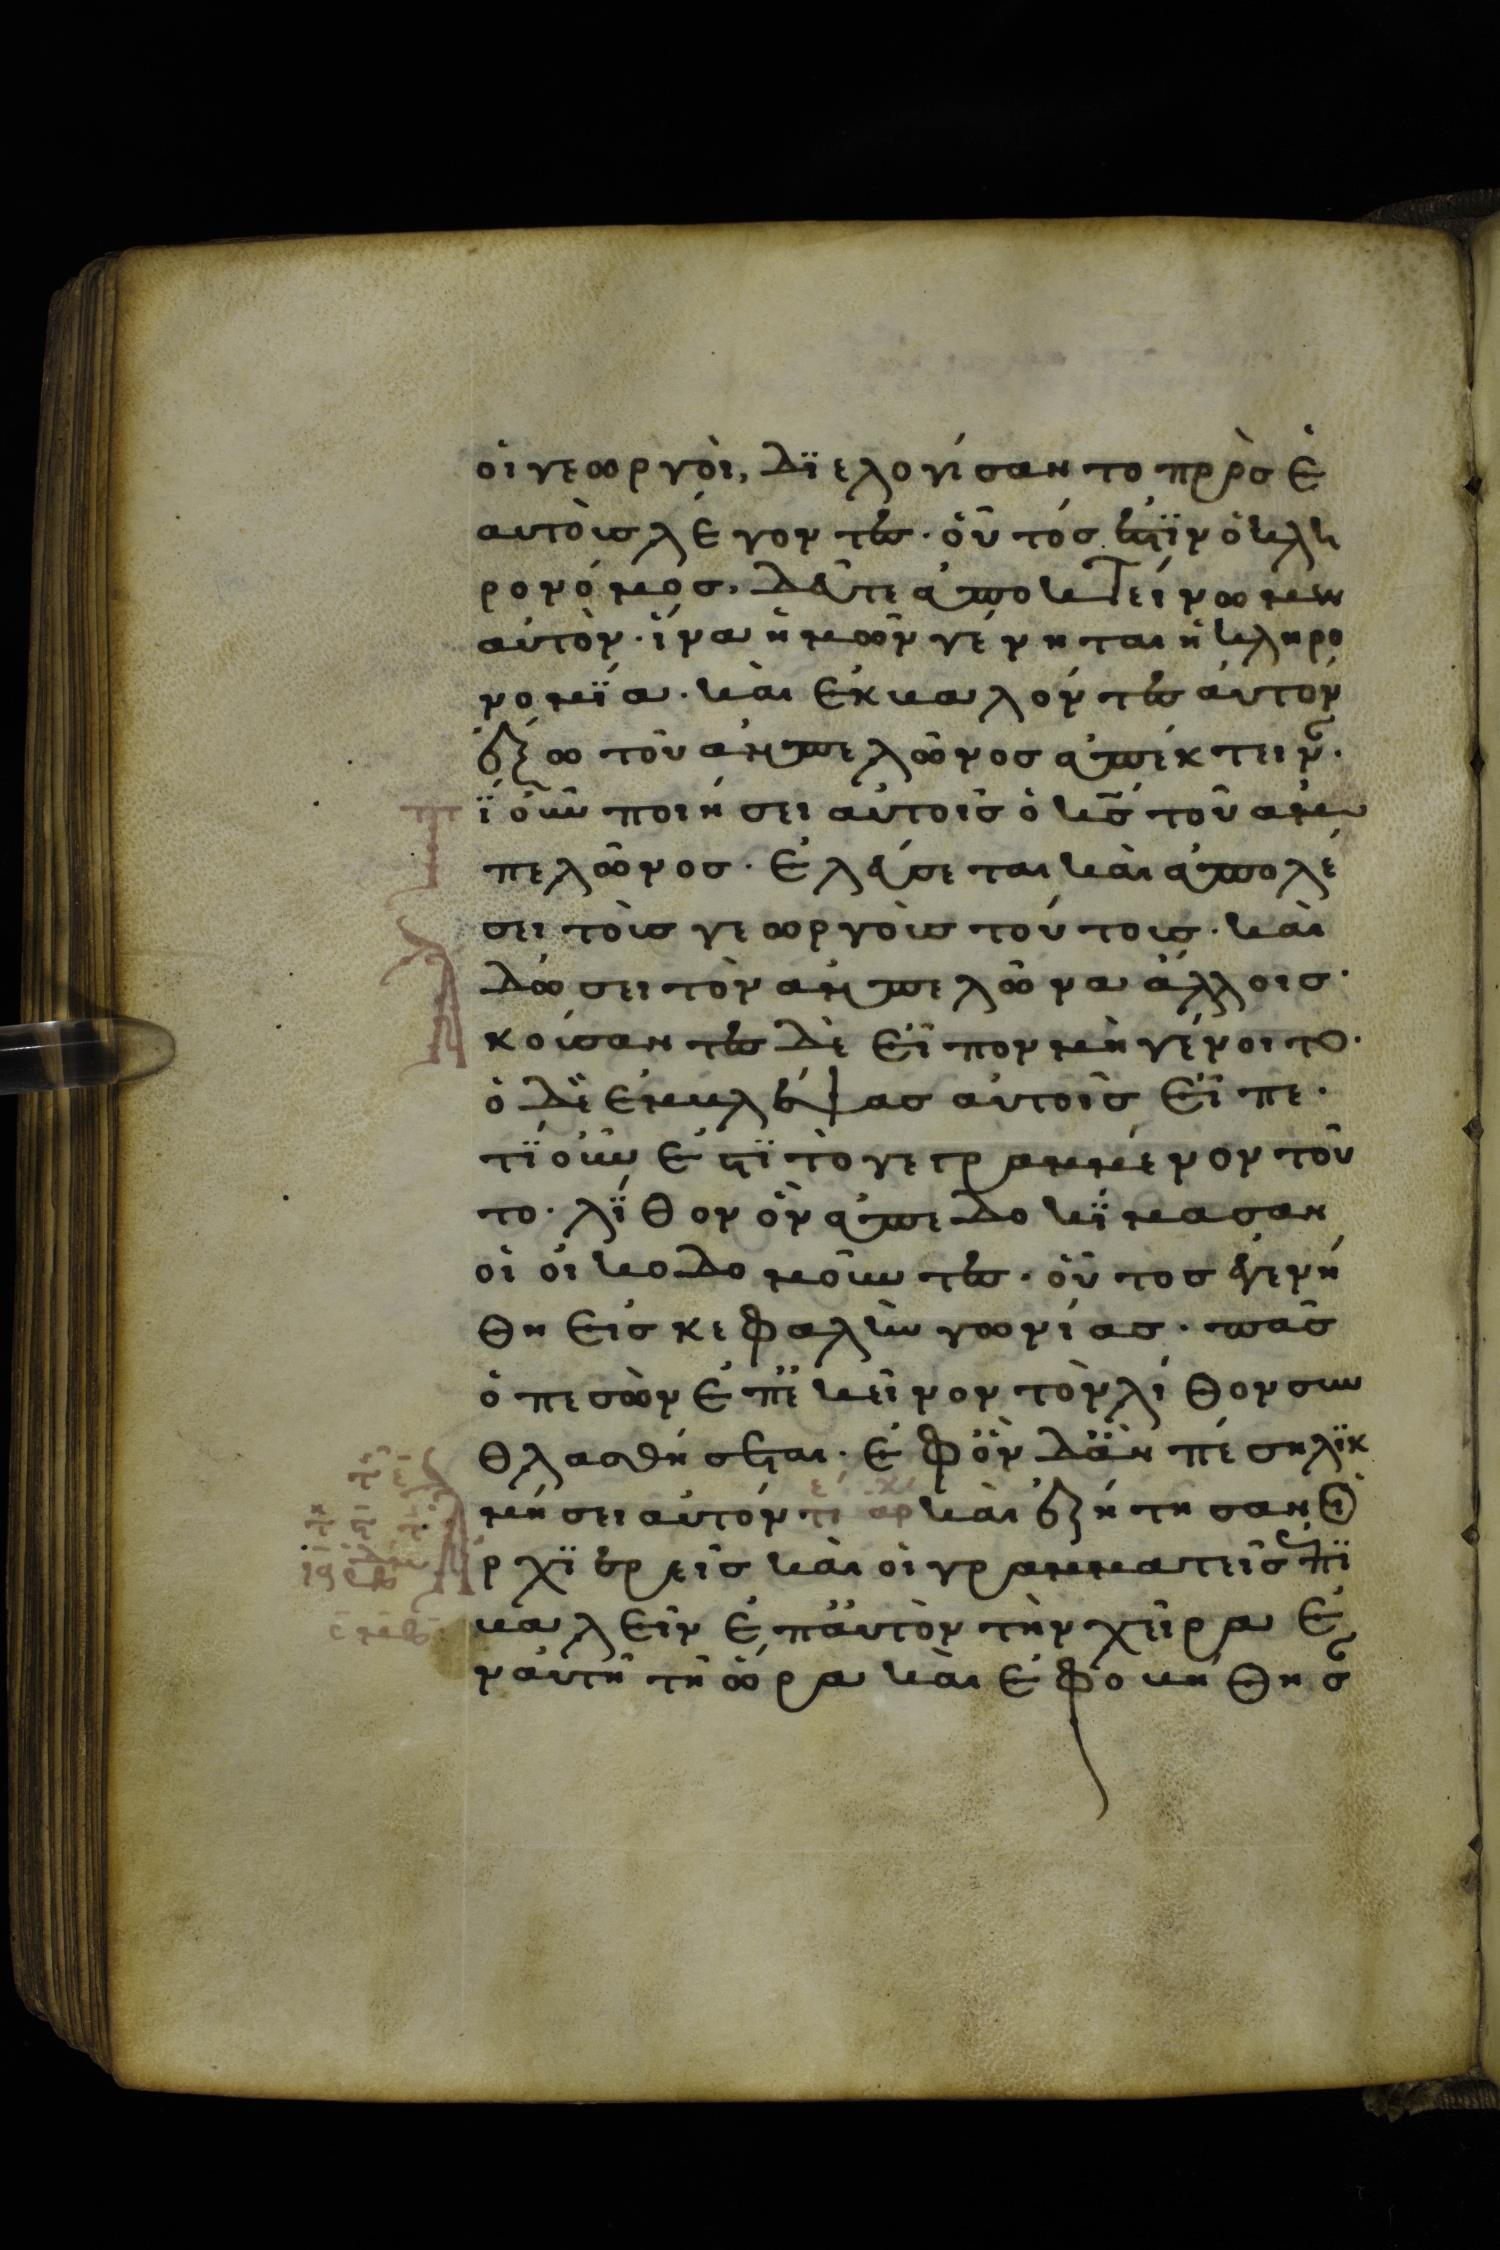 οἱ γεωργοὶ, διελογίσαντο πρὸς ἑ
αυτοὺς λέγοντες· οὗτός ἐστϊν ὁ κλη
ρονόμος. δεῦτε ἀποκτείνωμεν
αὐτὸν· ἵνα ἡμῶν γένηται ἡ κληρο
νομΐα· καὶ ἐκβαλόντες αὐτὸν
ἔξω τοῦ ἀμπελῶνος ἀπέκτειναν·
Τΐ οὖν ποιήσει αὐτοῖς ὁ κ̅ς̅ τοῦ ἀμ
πελῶνος· ἐλεύσεται καὶ ἀπολέ
σει τοὺς γεωργοὺς τούτους· καὶ
δώσει τὸν ἀμπελῶνα ἄλλοις·
Ἀκούσαντες δὲ εἶπον μὴ γένοιτο·
ὁ δὲ ἐμβλέψας αὐτοῖς εἶπε·
τΐ οὖν ἐστϊ τὸ γεγραμμένον τοῦ
το· λΐθον ὃν ἀπεδοκΐμασαν
οἱ οἰκοδομοῦντες· οὗτος ἐγενή
θη εἰς κεφαλὴν γωνίας· πᾶς
ὁ πεσὼν ἐπ' ἐκεῖνον τὸν λίθον συν
θλασθήσεται· ἐφ' ὃν δ' ἂν πέσῃ λϊκ
μήσει αὐτόν τε αρ καὶ ἐζήτησαν οἱ
Ἀρχϊερεῖς καὶ οἱ γραμματεῖς ἐπϊ
βαλεῖν ἐπ' αὐτὸν τὴν χεῖρα ἐ
ν αὐτῇ τῇ ὥρα καὶ ἐφοβήθησαν